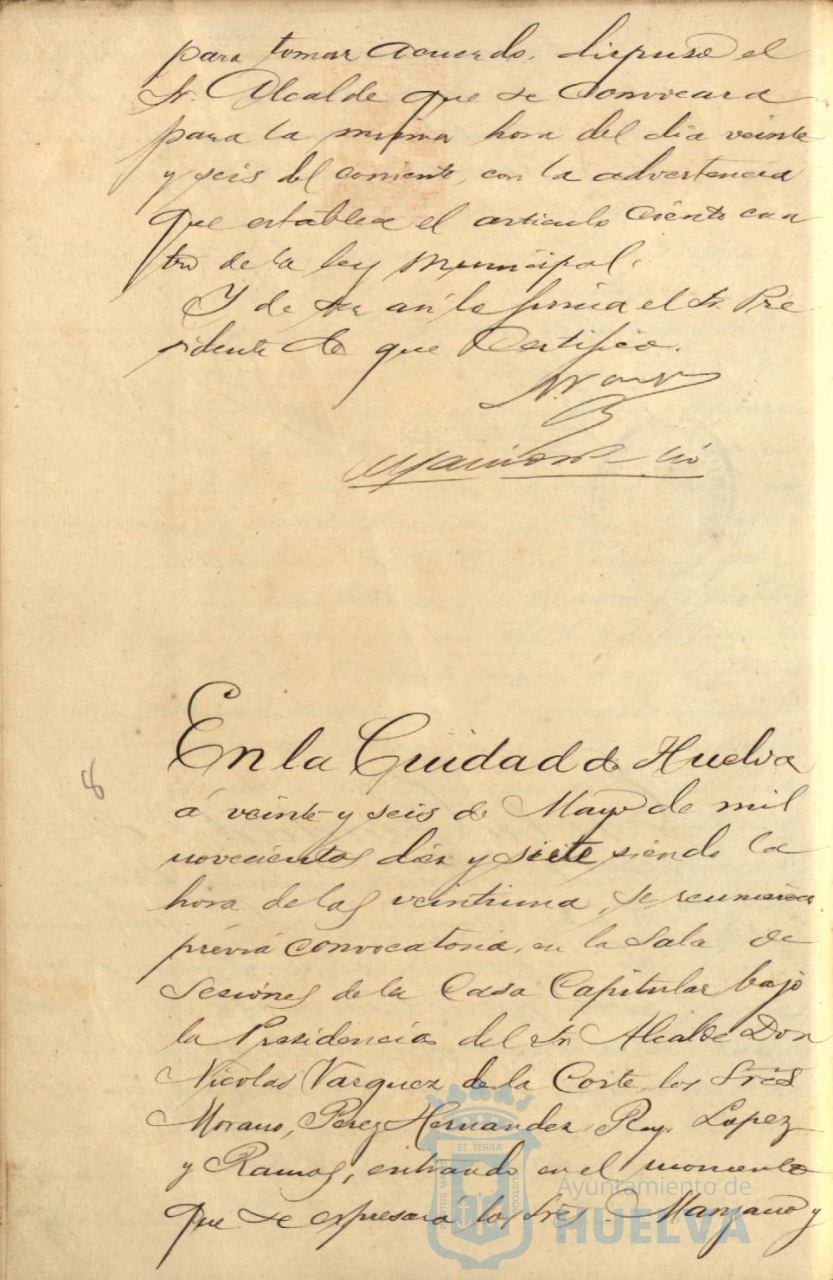 para tomar acuerdo, dispuso el
Sr. Alcalde que se convocara
para la misma hora del dia veinte
y seis del corriente, con la advertencia
que establece el articulo ciento cua
tro de la ley Municipal.
Y de ser asi lo firma el Sr. Pre
sidente de que Certifico.
En la Ciudad de Huelva
á veinte y seis de Mayo de mil
novecientos diez y siete siendo la
hora de las veintiuna, se reunieron
prévia convocatoria, en la Sala de
Sesiones de la Casa Capitular bajo
la Presidencia del Sr. Alcalde Don
Nicolas Vazquez de la Corte, los Sres
Morano, Perez Hernandez, Rey, Lopez
y Ramos, entrando en el momento
que se espresará los Sres. Manzano y
8
ET TERRÆ
Ayuntamiento de
HUELVA